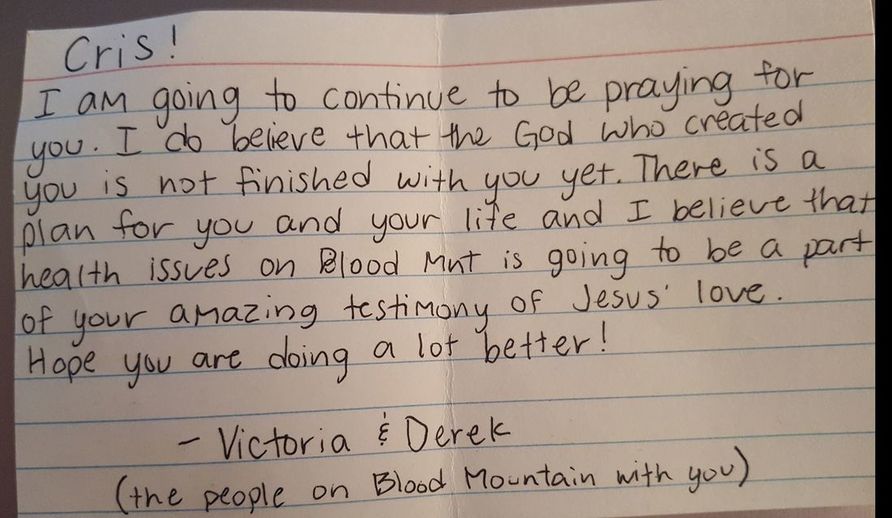 Cris!
I am going to continue to be praying for
you. I do believe that the God who created
you is not finished with you yet. There is a
plan for you and your life and I believe that
health issues on Blood Mnt is going to be a part
of your amazing testimony of Jesus' love.
Hope you are doing a lot better!
- Victoria & Derek
(the people on Blood Mountain with you)